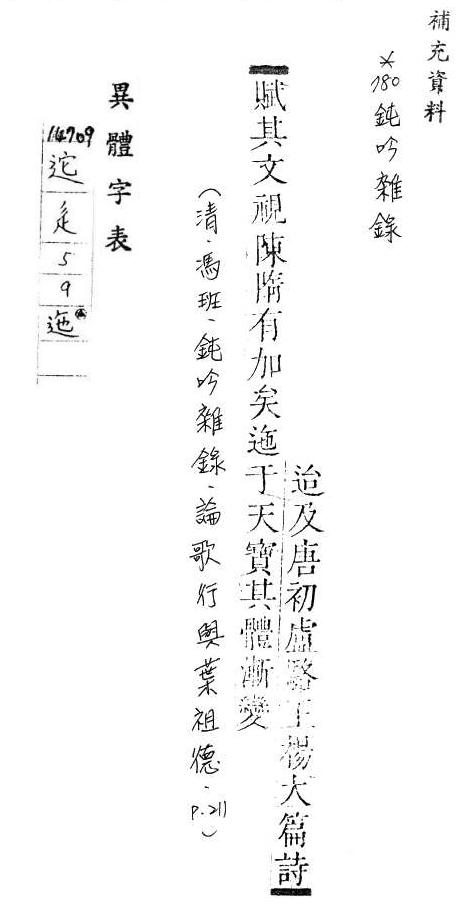 補充資料
*780鈍吟雜錄
迨及唐初盧駱王楊大篇詩
賦其文視陳隋有加矣迤于天寶其體漸變
(清.馮班.鈍吟雜錄.論歌行與葉祖德.P.211)
異體字表
14709
迱
辵
5
9
迤